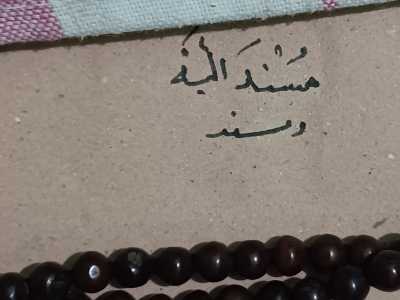 مُسْنَدَ اليهِ
و مسند